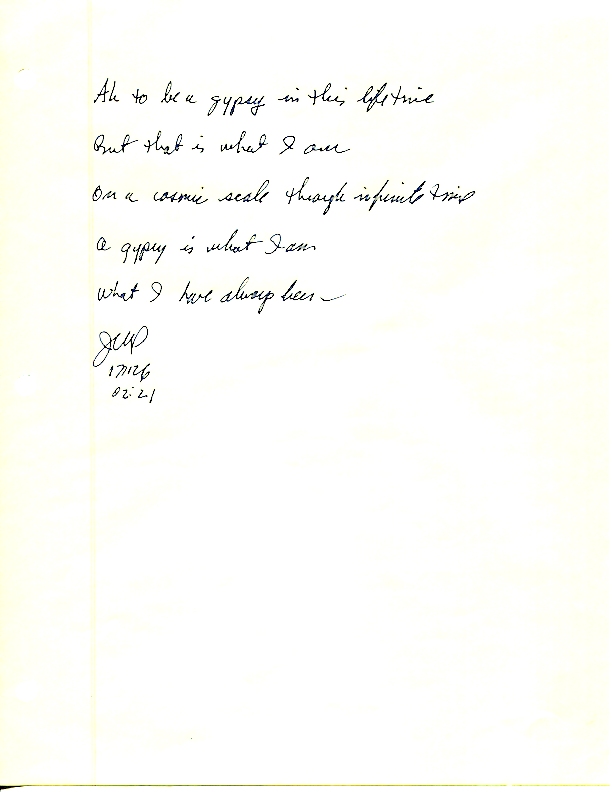 Ah to be a gypsy in this lifetime
But that is what I am
On a cosmic scale through infinite time
A gypsy is what I am
What I have always been
02:21